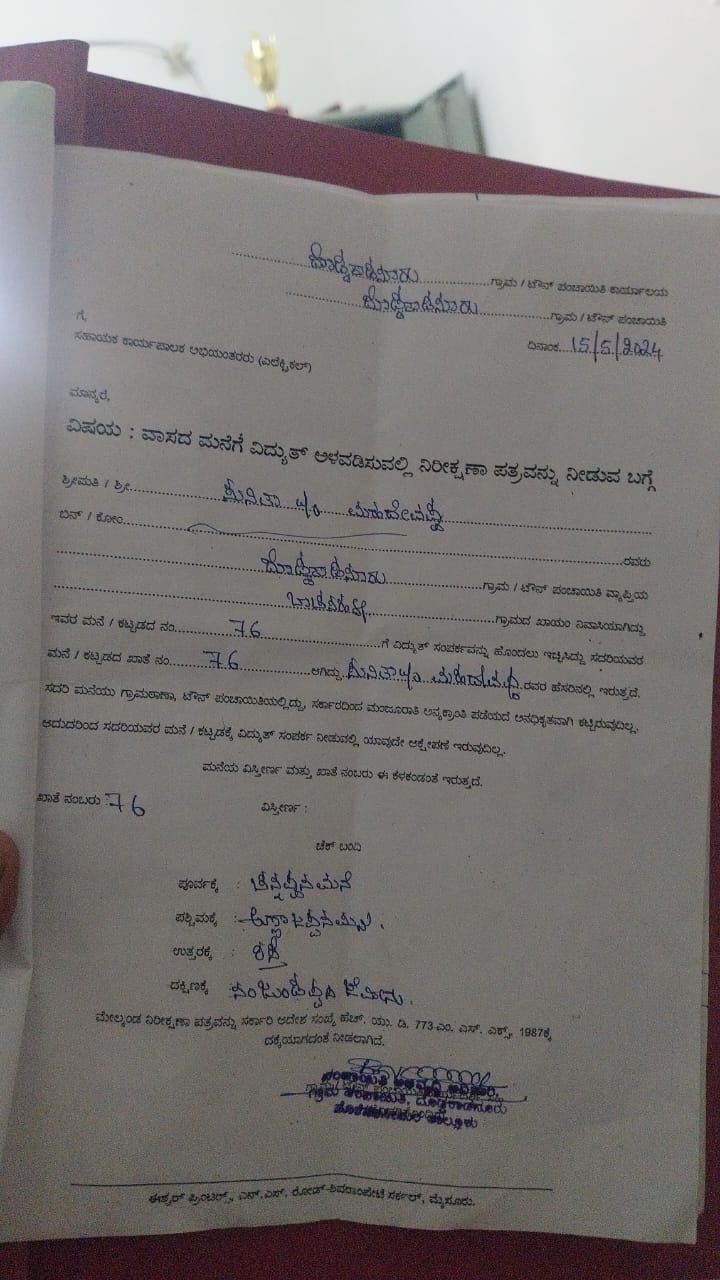 ದೊಡ್ಡಕಾಡನೂರು ಗ್ರಾಮ / ಟೌನ್ ಪಂಚಾಯಿತಿ ಕಾರ್ಯಾಲಯ
ದೊಡ್ಡಕಾಡನೂರು ಗ್ರಾಮ / ಟೌನ್ ಪಂಚಾಯಿತಿ
ದಿನಾಂಕ 15/5/2024
ಗೆ,
ಸಹಾಯಕ ಕಾರ್ಯಪಾಲಕ ಅಭಿಯಂತರರು (ಎಲೆಕ್ಟ್ರಿಕಲ್)
ಮಾನ್ಯರೆ,
ವಿಷಯ : ವಾಸದ ಮನೆಗೆ ವಿದ್ಯುತ್ ಅಳವಡಿಸುವಲ್ಲಿ ನಿರೀಕ್ಷಣಾ ಪತ್ರವನ್ನು ನೀಡುವ ಬಗ್ಗೆ
ಶ್ರೀಮತಿ / ಶ್ರೀ
ಬಿನ್ / ಕೋಂ ರವರು
ದೊಡ್ಡಕಾಡನೂರು ಗ್ರಾಮ / ಟೌನ್ ಪಂಚಾಯಿತಿ ವ್ಯಾಪ್ತಿಯ
ಗ್ರಾಮದ ಖಾಯಂ ನಿವಾಸಿಯಾಗಿದ್ದು
ಇವರ ಮನೆ / ಕಟ್ಟಡದ ನಂ. 76 ಗೆ ವಿದ್ಯುತ್ ಸಂಪರ್ಕವನ್ನು ಹೊಂದಲು ಇಚ್ಚಿಸಿದ್ದು ಸದರಿಯವರ
ಮನೆ / ಕಟ್ಟಡದ ಖಾತೆ ನಂ. 76 ಆಗಿದ್ದು ರವರ ಹೆಸರಿನಲ್ಲಿ ಇರುತ್ತದೆ.
ಸದರಿ ಮನೆಯು ಗ್ರಾಮಠಾಣಾ, ಟೌನ್ ಪಂಚಾಯಿತಿಯಲ್ಲಿದ್ದು, ಸರ್ಕಾರದಿಂದ ಮಂಜೂರಾತಿ ಅನ್ಯಕ್ರಾಂತಿ ಪಡೆಯದೆ ಅನಧಿಕೃತವಾಗಿ ಕಟ್ಟಿರುವುದಿಲ್ಲ.
ಆದುದರಿಂದ ಸದರಿಯವರ ಮನೆ / ಕಟ್ಟಡಕ್ಕೆ ವಿದ್ಯುತ್ ಸಂಪರ್ಕ ನೀಡುವಲ್ಲಿ ಯಾವುದೇ ಆಕ್ಷೇಪಣೆ ಇರುವುದಿಲ್ಲ.
ಮನೆಯ ವಿಸ್ತೀರ್ಣ ಮತ್ತು ಖಾತೆ ನಂಬರು ಈ ಕೆಳಕಂಡಂತೆ ಇರುತ್ತದೆ.
ಖಾತೆ ನಂಬರು : 76 ವಿಸ್ತೀರ್ಣ :
ಚೆಕ್ ಬಂದಿ
ಪೂರ್ವಕ್ಕೆ : ಚಿನ್ನಪ್ಪನ ಮನೆ
ಪಶ್ಚಿಮಕ್ಕೆ :
ಉತ್ತರಕ್ಕೆ : ರಸ್ತೆ
ದಕ್ಷಿಣಕ್ಕೆ : ನಂಜುಂಡಪ್ಪನ ಜಮೀನು.
ಮೇಲ್ಕಂಡ ನಿರೀಕ್ಷಣಾ ಪತ್ರವನ್ನು ಸರ್ಕಾರಿ ಆದೇಶ ಸಂಖ್ಯೆ ಹೆಚ್. ಯು. ಡಿ. 773 ಎಂ. ಎಸ್. ಎಕ್ಸ್, 1987ಕ್ಕೆ
ದಕ್ಕೆಯಾಗದಂತೆ ನೀಡಲಾಗಿದೆ.
ಪಂಚಾಯಿತಿ ಅಭಿವೃದ್ಧಿ ಅಧಿಕಾರಿ,
ಗ್ರಾಮ ಪಂಚಾಯಿತಿ, ದೊಡ್ಡಕಾಡನೂರು
ಹೊಳೆನರಸೀಪುರ ತಾಲ್ಲೂಕು
ಈಶ್ವರ್ ಪ್ರಿಂಟರ್ಸ್, ಎನ್.ಎಸ್. ರೋಡ್-ಶಿವರಾಂಪೇಟೆ ಸರ್ಕಲ್, ಮೈಸೂರು.